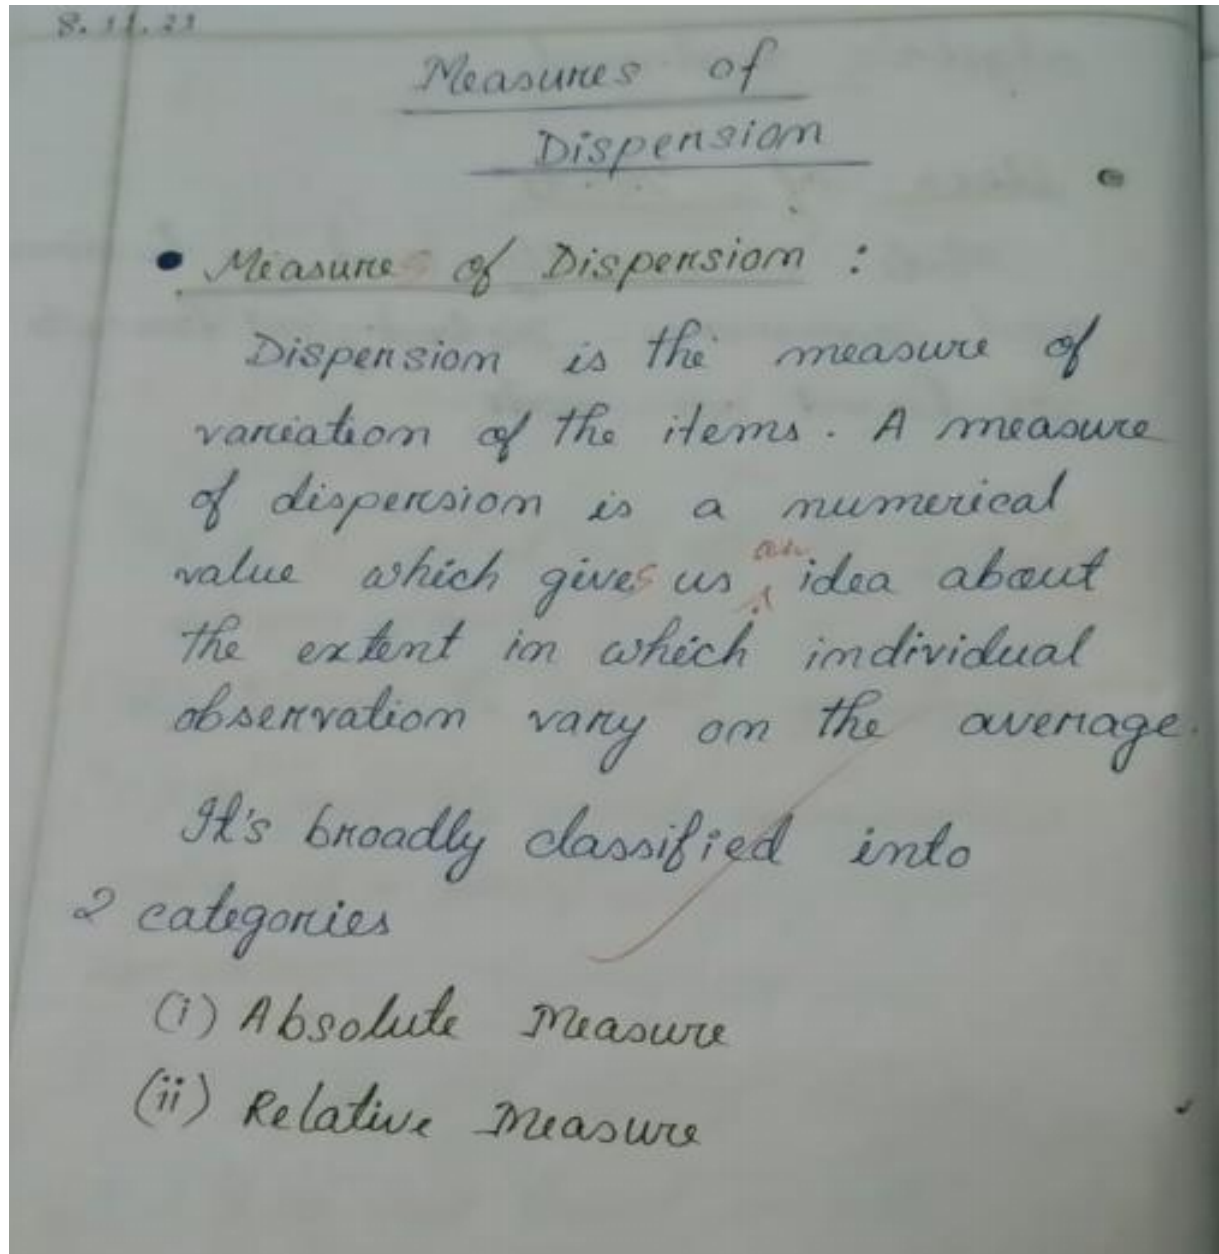 8.11.21
Measures of
Dispersion
• Measures of Dispersion :
Dispersion is the measure of
variation of the items. A measure
of dispersion is a numerical
value which gives us an idea about
the extent in which individual
observation vary on the average.
It's broadly classified into
2 categories
(i) Absolute Measure
(ii) Relative Measure